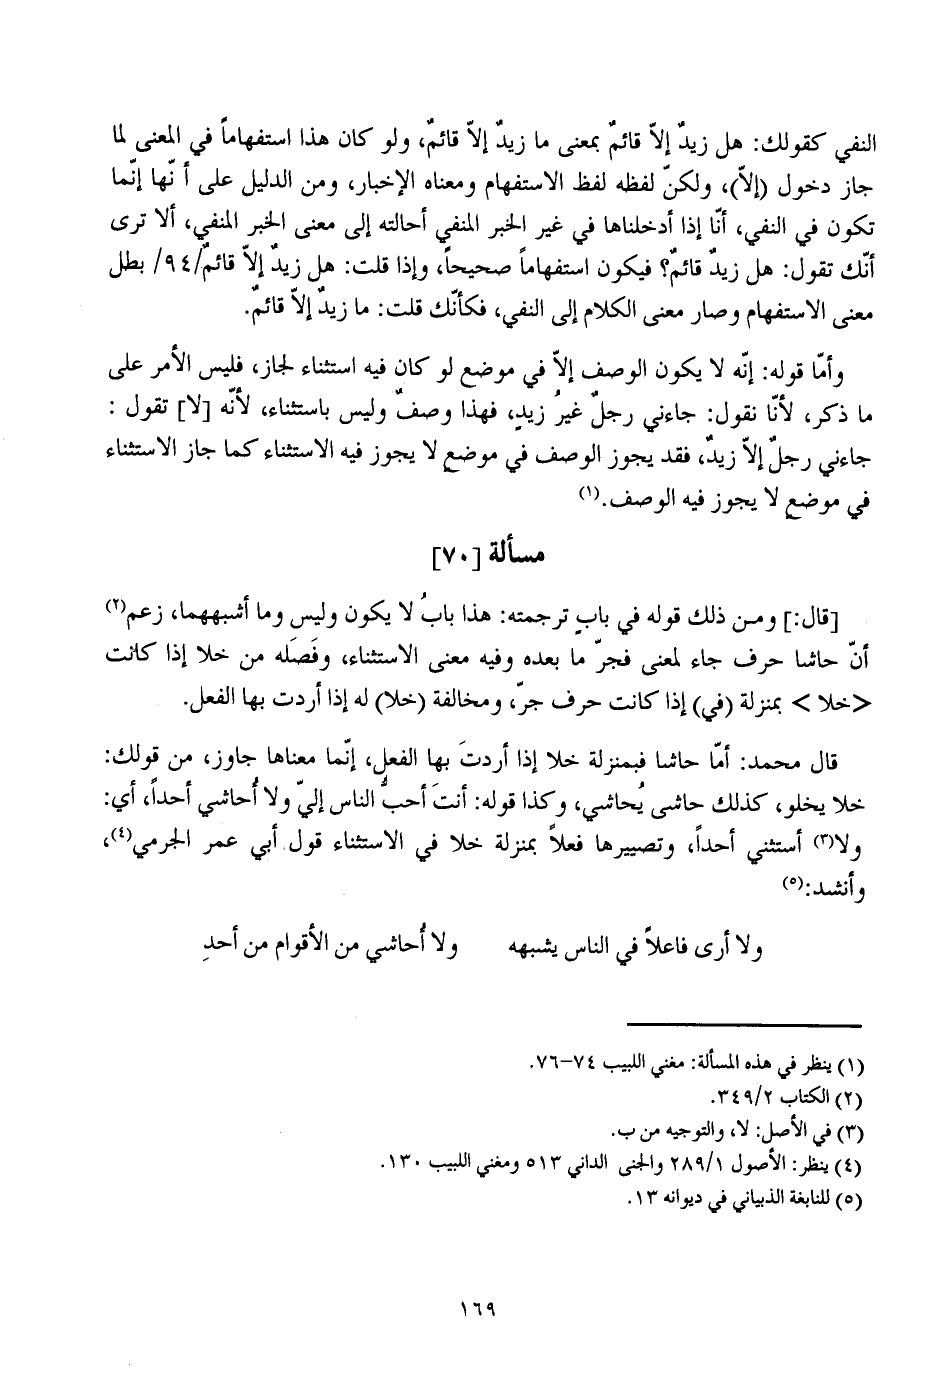 النفي كقولك: هل زيدٌ إلاّ قائمٌ بمعنى ما زيدٌ إلاّ قائمٌ، ولو كان هذا استفهاماً في المعنى لما
جاز دخول (إلاّ)، ولكنّ لفظه لفظ الاستفهام ومعناه الإخبار، ومن الدليل على أنّها إنّما
تكون في النفي، أنّا إذا أدخلناها في غير الخبر المنفي أحالته إلى معنى الخبر المنفي، ألا ترى
أنّك تقول: هل زيدٌ قائمٌ؟ فيكون استفهاماً صحيحاً، وإذا قلت: هل زيدٌ إلاّ قائمٌ/٩٤/ بطل
معنى الاستفهام وصار معنى الكلام إلى النفي، فكأنّك قلت: ما زيدٌ إلاّ قائمٌ.
وأمّا قوله: إنّه لا يكون الوصف إلاّ في موضعٍ لو كان فيه استثناء لجاز، فليس الأمر على
ما ذكر، لأنّا نقول: جاءني رجلٌ غيرُ زيدٍ، فهذا وصفٌ وليس باستثناء، لأنّه [لا] تقول :
جاءني رجلٌ إلاّ زيدٌ، فقد يجوز الوصف في موضعٍ لا يجوز فيه الاستثناء كما جاز الاستثناء
في موضعٍ لا يجوز فيه الوصف.(١)
مسألة [٧٠]
[قال:] ومن ذلك قوله في بابٍ ترجمته: هذا بابُ لا يكون وليس وما أشبههما، زعم(٢)
أنّ حاشا حرف جاء لمعنى فجرّ ما بعده وفيه معنى الاستثناء، وفَصَله من خلا إذا كانت
<خلا> بمنزلة (في) إذا كانت حرف جرّ، ومخالفة (خلا) له إذا أردت بها الفعل.
قال محمد: أمّا حاشا فبمنزلة خلا إذا أردتَ بها الفعل، إنّما معناها جاوز، من قولك:
خلا يخلو، كذلك حاشى يُحاشي، وكذا قوله: أنتَ أحبُّ الناس إليّ ولا أُحاشي أحداً، أي:
ولا(٣) أستثني أحداً، وتصييرها فعلاً بمنزلة خلا في الاستثناء قول أبي عمر الجرمي(٤)،
وأنشد:(٥)
ولا أرى فاعلاً في الناس يشبهه ولا أُحاشي من الأقوام من أحدِ
(١) ينظر في هذه المسألة: مغني اللبيب ٧٤-٧٦.
(٢) الكتاب ٣٤٩/٢.
(٣) في الأصل: لا، والتوجيه من ب.
(٤) ينظر: الأصول ٢٨٩/١ والجنى الداني ٥١٣ ومغني اللبيب ١٣٠.
(٥) للنابغة الذبياني في ديوانه ١٣.
١٦٩